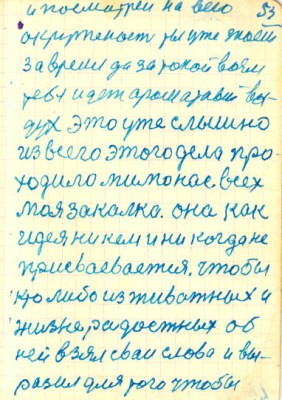 и посмотрел на всю 53
окруженост ты уже твоей
за время да за такой возм
тебя идет ароматный воз-
дух это уже слышно
из всего этого дела про-
ходило мимо нас всех
моя закалка. она как
идея ни кем и ни когда не
присваевается. чтобы
кто либо из животных и
жизнерадостных об
ней взял сваи слова и вы-
разил для того чтобы